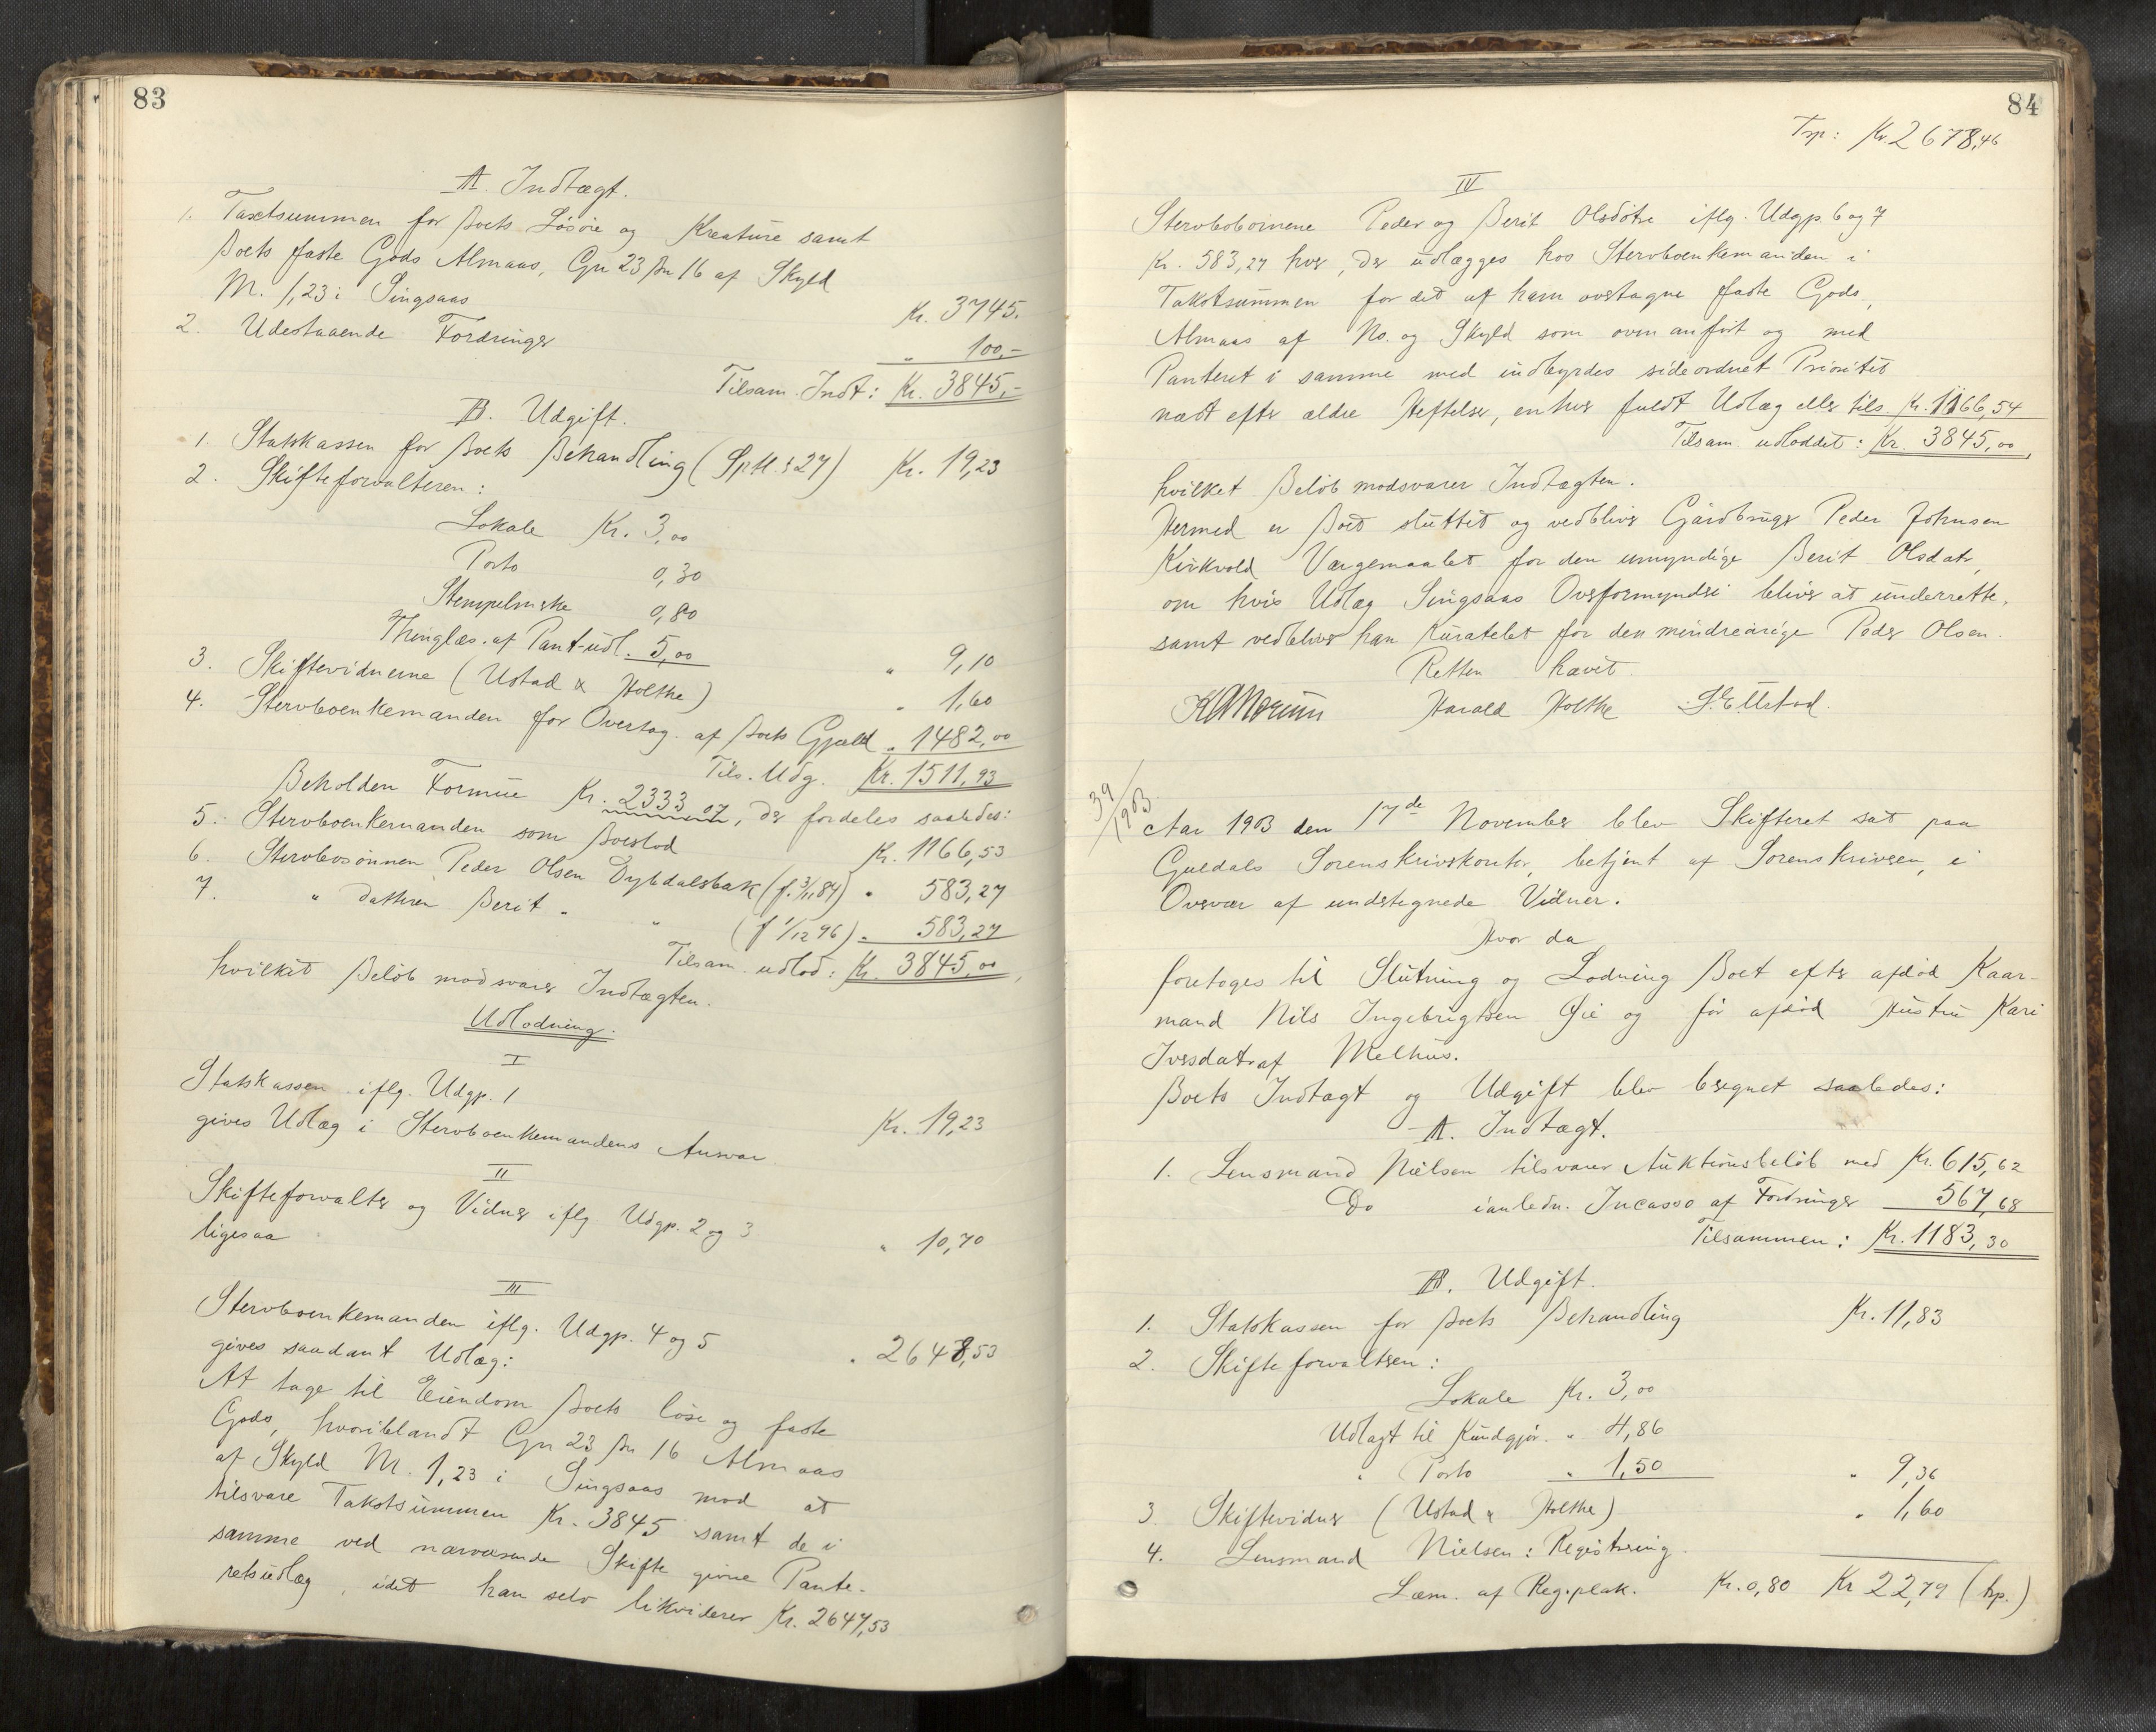 83
A. Indtægt.
1. Taxtsummen for Boets Løsøre og Kreature samt
Boets faste Gods Almaas, Gn 23 Bn 16 af Skyld
M. 1,23 i Singsaas Kr. 3745.
2. Udestaaende Fordringer " 100,-
Tilsam. Indt: Kr. 3845,-
B. Udgift.
1. Statskassen for Boets Behandling (Sptl. § 27) Kr. 19,23
2. Skifteforvalteren:
Lokale Kr. 3,00
Porto 0,30
Stempelmærke 0,80
Thinglæs. af Pant-udl. 5,00 " 9,10
3. Skiftevidnerne (Ustad & Holthe) " 1,60
4. Stervboenkemanden for Overtag. af Boets Gjæld " 1482,00
Tils. Udg. Kr. 1511,93
Beholden Formue Kr. 2333,07, der fordeles saaledes:
5. Stervboenkemanden som Boeslod Kr. 1166,53
6. Stervbosønnen Peder Olsen Dybdalsbak (f. 3/11 84) " 583,27
7. " datteren Berit " " (f 1/12 96) " 583,27
Tilsam. udlod: Kr. 3845,00,
hvilket Beløb modsvarer Indtægten.
Udlodning.
I
Statskassen iflg. Udgp. 1
gives Udlæg i Stervboenkemandens Ansvar Kr. 19,23
II
Skifteforvalter og Vidner iflg Udgp. 2 og 3
ligesaa " 10,70
III
Stervboenkemanden iflg. Udgp. 4 og 5
gives saadant Udlæg: " 2648,53
At tage til Eiendom Boets løse og faste
Gods, hvoriblandt Gn 23 Bn 16 Almaas
af Skyld M. 1,23 i Singsaas mod at
tilsvare Takstsummen Kr. 3845 samt de i
samme ved nærværende Skifte givne Pante-
retsudlæg, idet han selv likviderer Kr. 2647,53
84
Trp: Kr. 2678,46
IV
Stervbobørnene Peder og Berit Olsdøtre iflg. Udgp. 6 og 7
Kr. 583,27 hver, der udlægges hos Stervboenkemanden i
Takstsummen for det af ham overtagne faste Gods,
Almaas af No. og Skyld som oven anført og med
Panteret i samme med indbyrdes sideordnet Prioritet
næst efter ældre Heftelser, enhver fuldt Udlæg eller tils. Kr. 1166,54
Tilsam. udloddet: Kr. 3845,00,
hvilket Beløb modsvarer Indtægten.
Hermed er Boet sluttet og vedbliver Gårdbruger Peder Johnsen
Kirkvold Værgemaalet for den umyndige Berit Olsdatr,
om hvis Udlæg Singsaas Overformynderi bliver at underrette,
samt vedbliver han Kuratelet for den mindreårige Peder Olsen.
Retten hævet.
Harald Holthe
39/1903
Aar 1903 den 17de November blev Skifteret sat paa
Guldals Sorenskriverkontor, betjent af Sorenskriveren, i
Overvær af undertegnede Vidner.
Hvor da
foretoges til Slutning og Lodning Boet efter afdød Kaar-
mand Nils Ingebrigtsen Øie og før afdød Hustru Kari
Iversdatr af Melhus.
Boets Indtægt og Udgift blev beregnet saaledes:
A. Indtægt.
1. Lensmand Nielsen tilsvarer Auktionsbeløb med Kr. 615,62
Do ianledn. Incasso af Fordringer 567,68
Tilsammen: Kr. 1183,30
B. Udgift.
1. Statskassen for Boets Behandling Kr. 11,83
2. Skifteforvalteren:
Lokale Kr. 3,00
Udlagt til Kundgjør. " 4,86
" Porto " 1,50 " 9,36
3. Skiftevidner (Ustad & Holthe) " 1,60
4. Lensmand Nielsen: Registrering.
Læm. af Reg.plak. Kr. 0,80 Kr 22,79 (trp.)